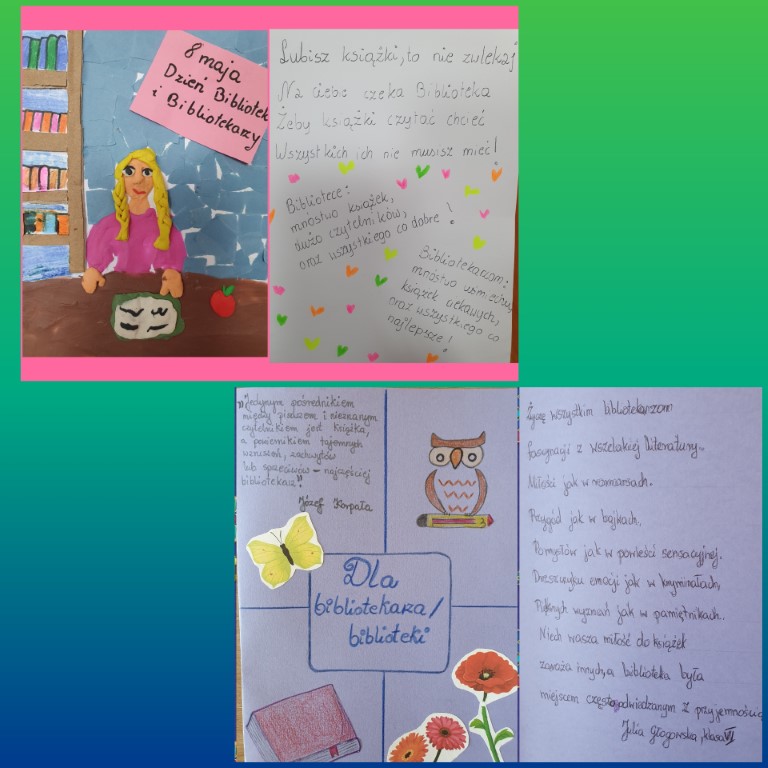 8 maja
Dzień Bibliotek
i Bibliotekarzy
Lubisz książki, to nie zwlekaj
Na ciebie czeka Biblioteka
Żeby książki czytać chcieć
Wszystkich ich nie musisz mieć!
Bibliotece:
mnóstwo książek,
dużo czytelników,
oraz wszystkiego co dobre!
Bibliotekarzom:
mnóstwo uśmiechu,
książek ciekawych,
oraz wszystkiego co
najlepsze!
"Jedynym pośrednikiem
między pisarzem i nieznanym
czytelnikiem jest książka,
a powiernikiem tajemnych
wzruszeń, zachwytów
lub sprzeciwów – najczęściej
bibliotekarz"
Józef Korpała
Dla
bibliotekarza/
biblioteki
Życzę wszystkim bibliotekarzom
fascynacji z wszelakiej literatury.
Miłości jak w romansach.
Przygód jak w bajkach,
Pomysłów jak w powieści sensacyjnej.
Dreszczyku emocji jak w kryminałach,
Pięknych wyznań jak w pamiętnikach..
Niech wasza miłość do książek
zaraża innych, a biblioteka była
miejscem często odwiedzanym z przyjemnością
Julia Głogowska, klasa VI